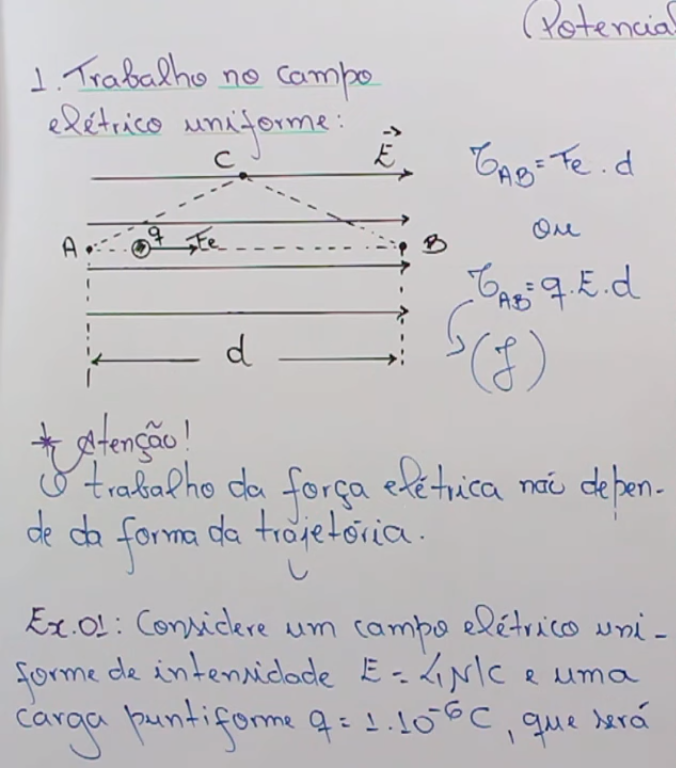 (Potencial
1. Trabalho no campo
elétrico uniforme:
C
E
A
q
Fe
B
d
τAB = Fe . d
ou
τAB = q . E . d
(J)
* Atenção!
O trabalho da força elétrica não depen-
de da forma da trajetória.
Ex. 01: Considere um campo elétrico uni-
forme de intensidade E = 4 N/C e uma
carga puntiforme q = 1.10⁻⁶ C, que será